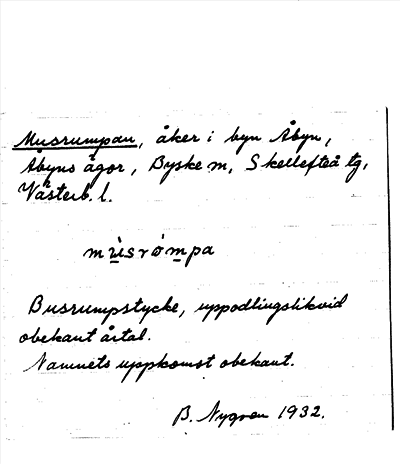 Musrumpan, åker i byn Åbyn,
Åbyns ägor, Byske m, Skellefteå tg,
Västerb. l.
mùsrómpa
Busrumpstycke, uppodlingslikvid
obekant årtal.
Namnets uppkomst obekant.
B. Nygren 1932.